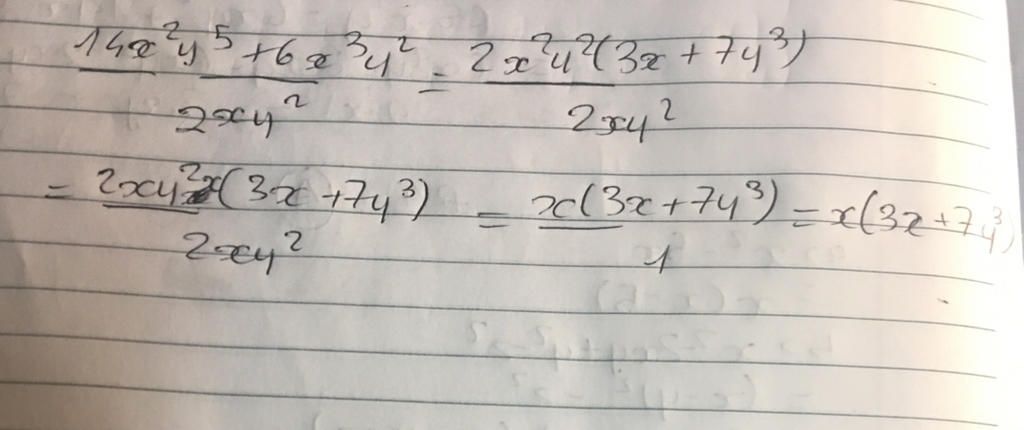 14x²y⁵ + 6x³y² / 2xy² = 2x²y²(3x + 7y³) / 2xy²
= 2xy²x(3x + 7y³) / 2xy² = x(3x + 7y³) / 1 = x(3x + 7y³)